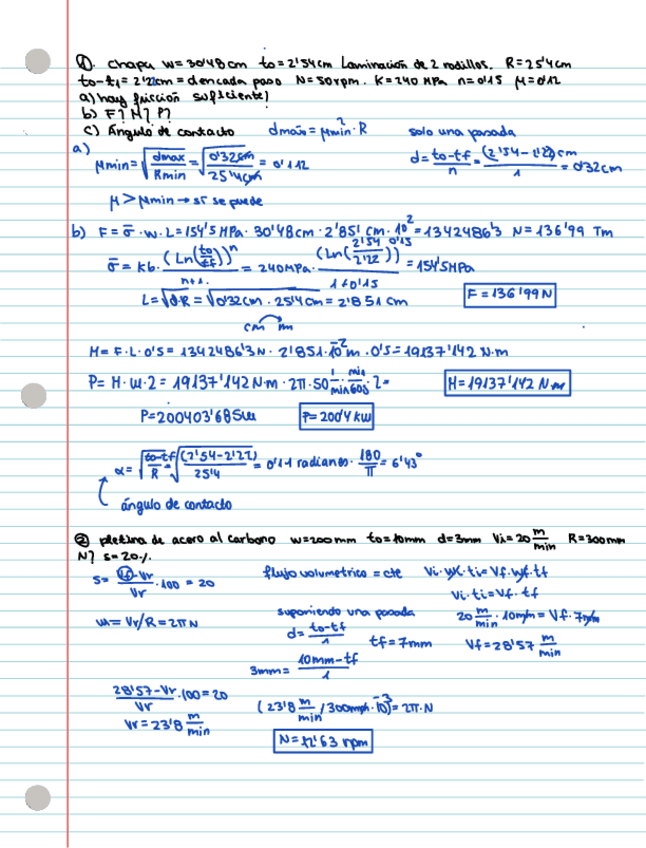 ①. chapa w=30'48cm to=2'54cm Laminación de 2 rodillos. R=25'4cm
to-t1=2'22cm=den cada paso N=50rpm. K=240 MPa n=0'15 μ=0'12
a) hay fricción suficiente?
b) F? M? P?
c) Ángulo de contacto dmax=μ²min·R solo una pasada
a) μmin=√(dmax/Rmin)=√(0'32cm/25'4cm)=0'112 d=(to-tf)/n=(2'54-2'22)cm/1=0'32cm
μ>μmin→sí se puede
b) F=σ̄·w·L=154'5MPa·30'48cm·2'851cm·10²=1342486'3 N=136'99 Tm
σ̄=Kb·(Ln(to/tf))ⁿ/n+1.=240MPa·(Ln(2'54/2'22))^0'15/1+0'15=154'5MPa
L=√d·R=√0'32cm·25'4cm=2'851cm F=136'99N
cm m
M=F·L·0'5=1342486'3N·2'851·10⁻²m·0'5=19137'142N·m
P=M·ω·2=19137'142N·m·2π·50 1/min·min/60s·2= M=19137'142 N·m
P=200403'685W P=200'4 kW
α=√(to-tf/R)=√((2'54-2'22)/25'4)=0'11 radianes·180/π=6'43°
ángulo de contacto
② pletina de acero al carbono w=200mm to=10mm d=3mm Vi=20 m/min R=300mm
N? s=20%
s=(Vf-Vr)/Vr·100=20 flujo volumetrico=cte Vi·wi·ti=Vf·wf·tf
Vi·ti=Vf·tf
ω=Vr/R=2πN suponiendo una pasada 20 m/min·10mm=Vf·7mm
d=(to-tf)/1 tf=7mm Vf=28'57 m/min
3mm=(10mm-tf)/1
(28'57-Vr)/Vr·100=20 (23'8 m/min/300mm·10⁻³)=2π·N
Vr=23'8 m/min
N=12'63 rpm